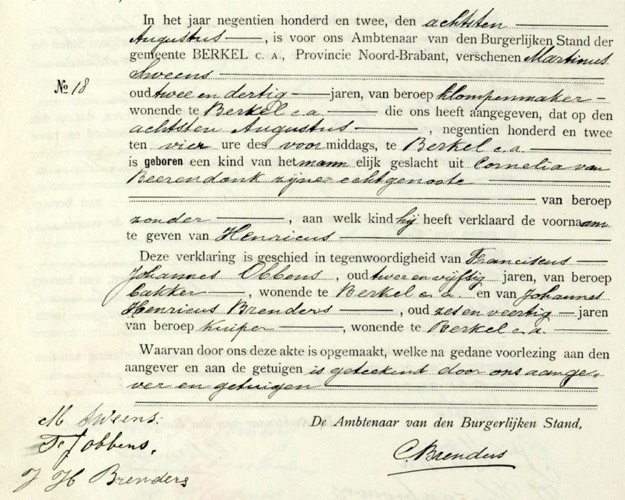 In het jaar negentien honderd en twee, den achtsten
Augustus, is voor ons Ambtenaar van den Burgerlijken Stand der
gemeente BERKEL C. A., Provincie Noord-Brabant, verschenen Martinus
No 18 Sweens
oud twee en dertig jaren, van beroep klompenmaker
wonende te Berkel c.a. die ons heeft aangegeven, dat op den
achtsten Augustus, negentien honderd en twee
ten vier ure des voormiddags, te Berkel c.a.
is geboren een kind van het mannelijk geslacht uit Cornelia van
Beerendonk zijne echtgenoote
van beroep
zonder, aan welk kind hij heeft verklaard de voornaam
te geven van Henricus
Deze verklaring is geschied in tegenwoordigheid van Franciscus
Johannes Obbens, oud twee en vijftig jaren, van beroep
bakker, wonende te Berkel c.a. en van Johannes
Henricus Brenders, oud zes en veertig jaren
van beroep kuiper, wonende te Berkel c.a.
Waarvan door ons deze akte is opgemaakt, welke na gedane voorlezing aan den
aangever en aan de getuigen is geteekend door ons aange-
ver en getuigen
M Sweens.
De Ambtenaar van den Burgerlijken Stand,
F. J Obbens.
CBrenders
J H Brenders